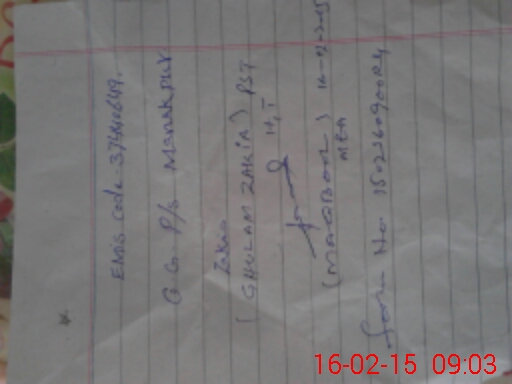 EMIS code 37440649.
G.G. P/S Manakpur
(GHULAM ZAKIA) PST
H,T
(MAQBOOL) 16-02-2015
MEA
Form No 1502160900R4
16-02-15 09:03